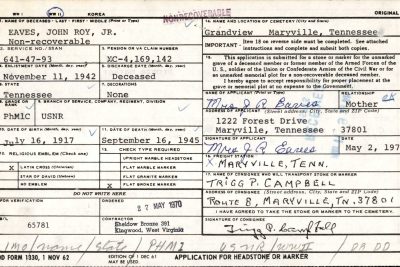 WW I
WW II
KOREA
ORIGINAL
NONRECOVERABLE
EAVES, JOHN ROY, JR.
Non-recoverable
641-47-93
XC-4,169,142
November 11, 1942
Deceased
STATE
DECORATIONS
Tennessee
None
PhM1C USNR
July 16, 1917
September 16, 1945
LATIN CROSS
STAR OF DAVID
NO EMBLEM
UPRIGHT MARBLE HEADSTONE
FLAT MARBLE MARKER
FLAT GRANITE MARKER
FLAT BRONZE MARKER
DO NOT WRITE HERE
27 MAY 1970
65781
Sheidow Bronze 391
Kingwood, West Virginia
FORM 1330, 1 NOV 62
EDITION OF 1 DEC 61
Grandview Maryville, Tennessee
IMPORTANT: Item 18 on reverse side must be completed. See attached instructions and complete and submit both copies.
This application is submitted for a stone or marker for the unmarked grave of a deceased member or former member of the Armed Forces of the U.S., soldier of the Union or Confederate Armies of the Civil War or for an unmarked memorial plot for a non-recovered deceased member.
I hereby agree to accept responsibility for proper placement at the grave or memorial plot at no expense to the Government.
Mrs J R Eaves
Mother
OK
1222 Forest Drive
Maryville, Tennessee 37801
Mrs J R Eaves
May 2, 197
MARYVILLE, TENN.
TRIGG P. CAMPBELL
ROUTE 8, MARYVILLE, TN. 37801
I HAVE AGREED TO TAKE THE STONE OR MARKER TO THE CEMETERY.
Trigg P. Campbell
APPLICATION FOR HEADSTONE OR MARKER